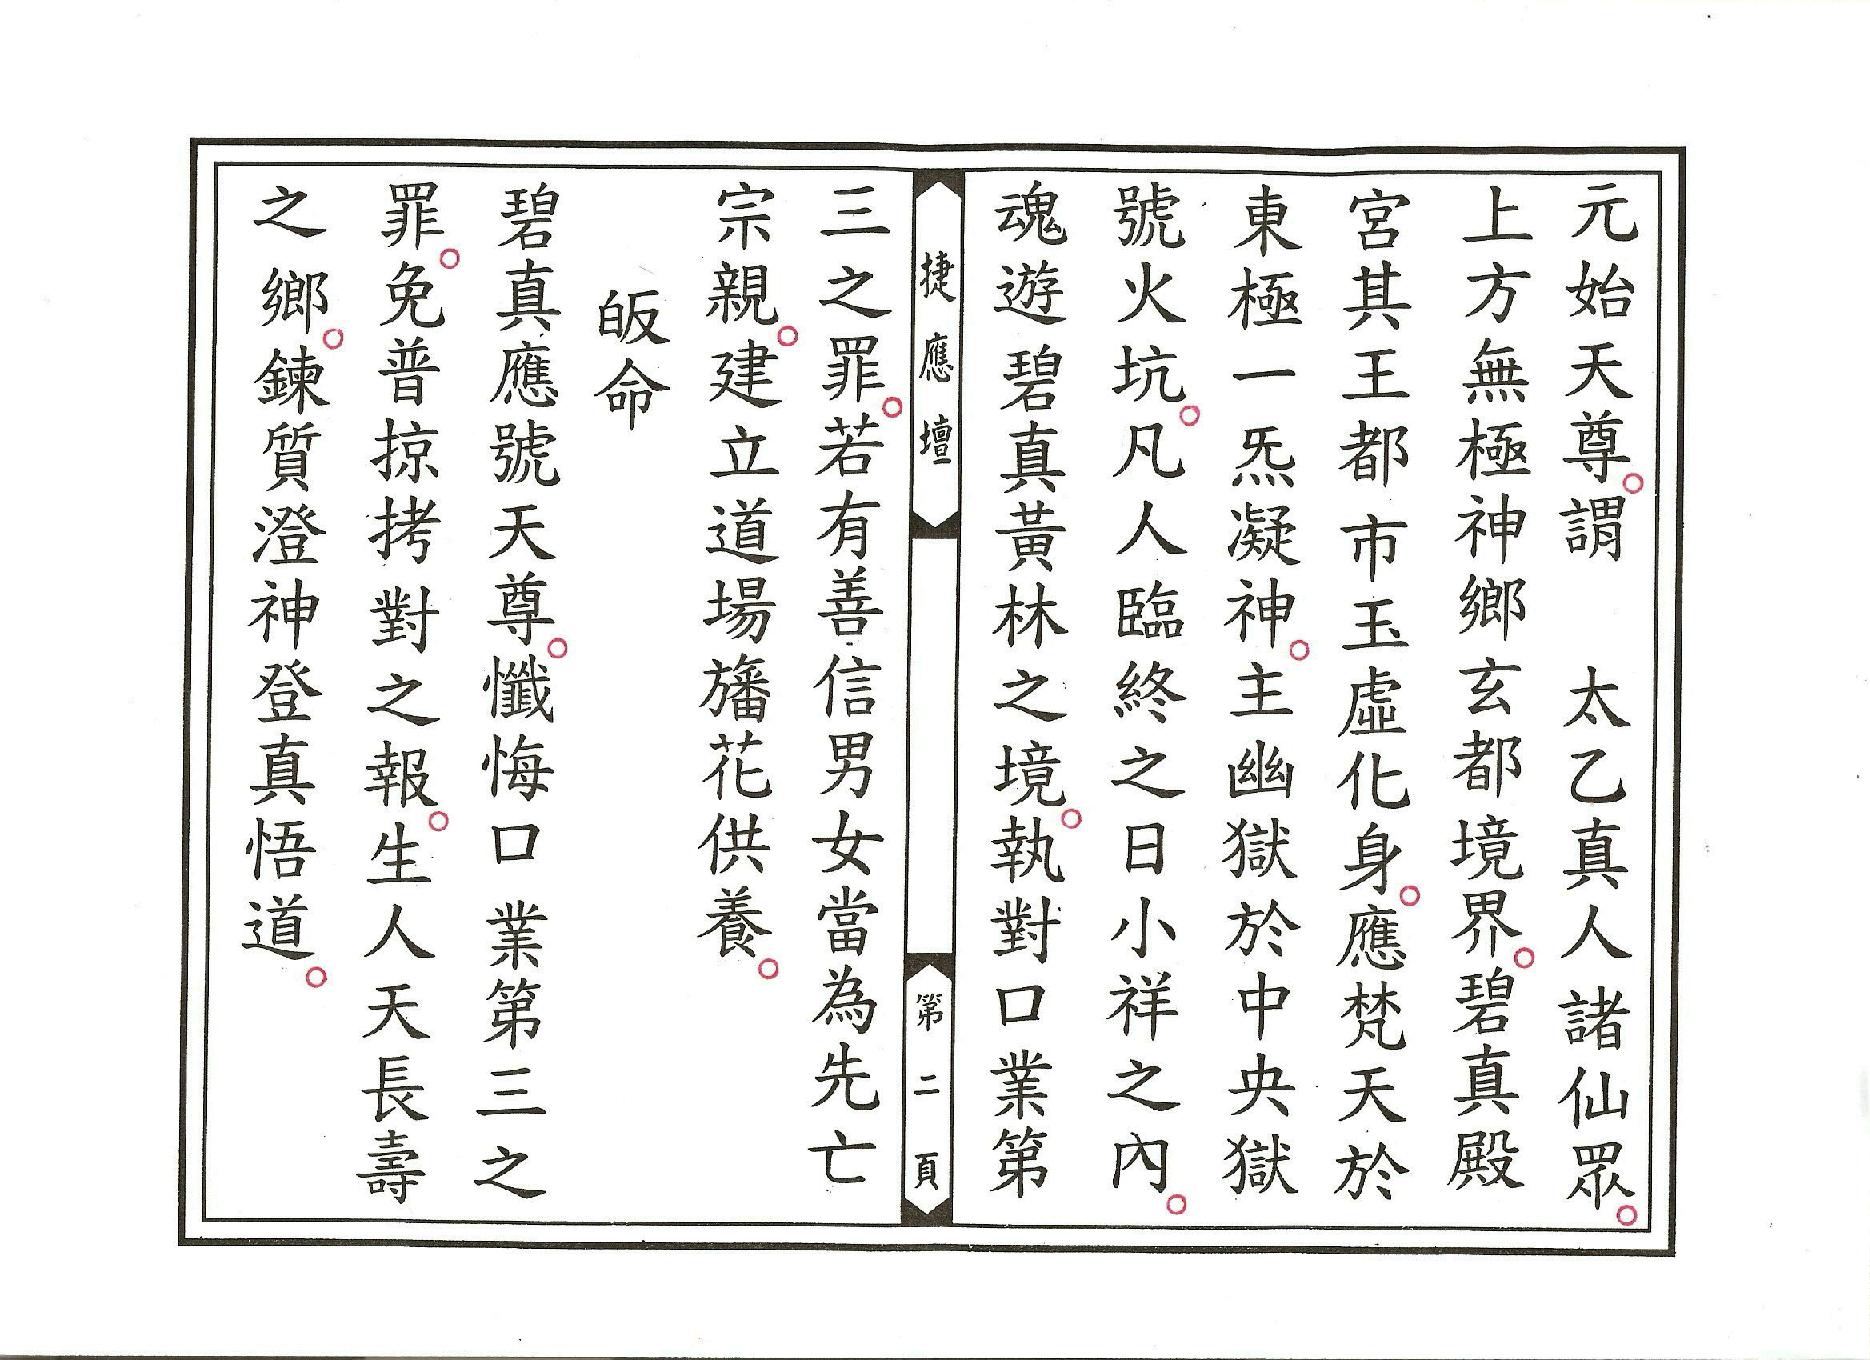 元始天尊。謂　太乙真人諸仙眾。
上方無極神鄉玄都境界。碧真殿
宮其王都市玉虛化身。應梵天於
東極一炁凝神。主幽獄於中央獄
號火坑。凡人臨終之日小祥之內。
魂遊碧真黃林之境。執對口業第
捷應壇
第二頁
三之罪。若有善信男女當為先亡
宗親。建立道場旛花供養。
皈命
碧真應號天尊。懺悔口業第三之
罪。免普掠拷對之報。生人天長壽
之鄉。鍊質澄神登真悟道。